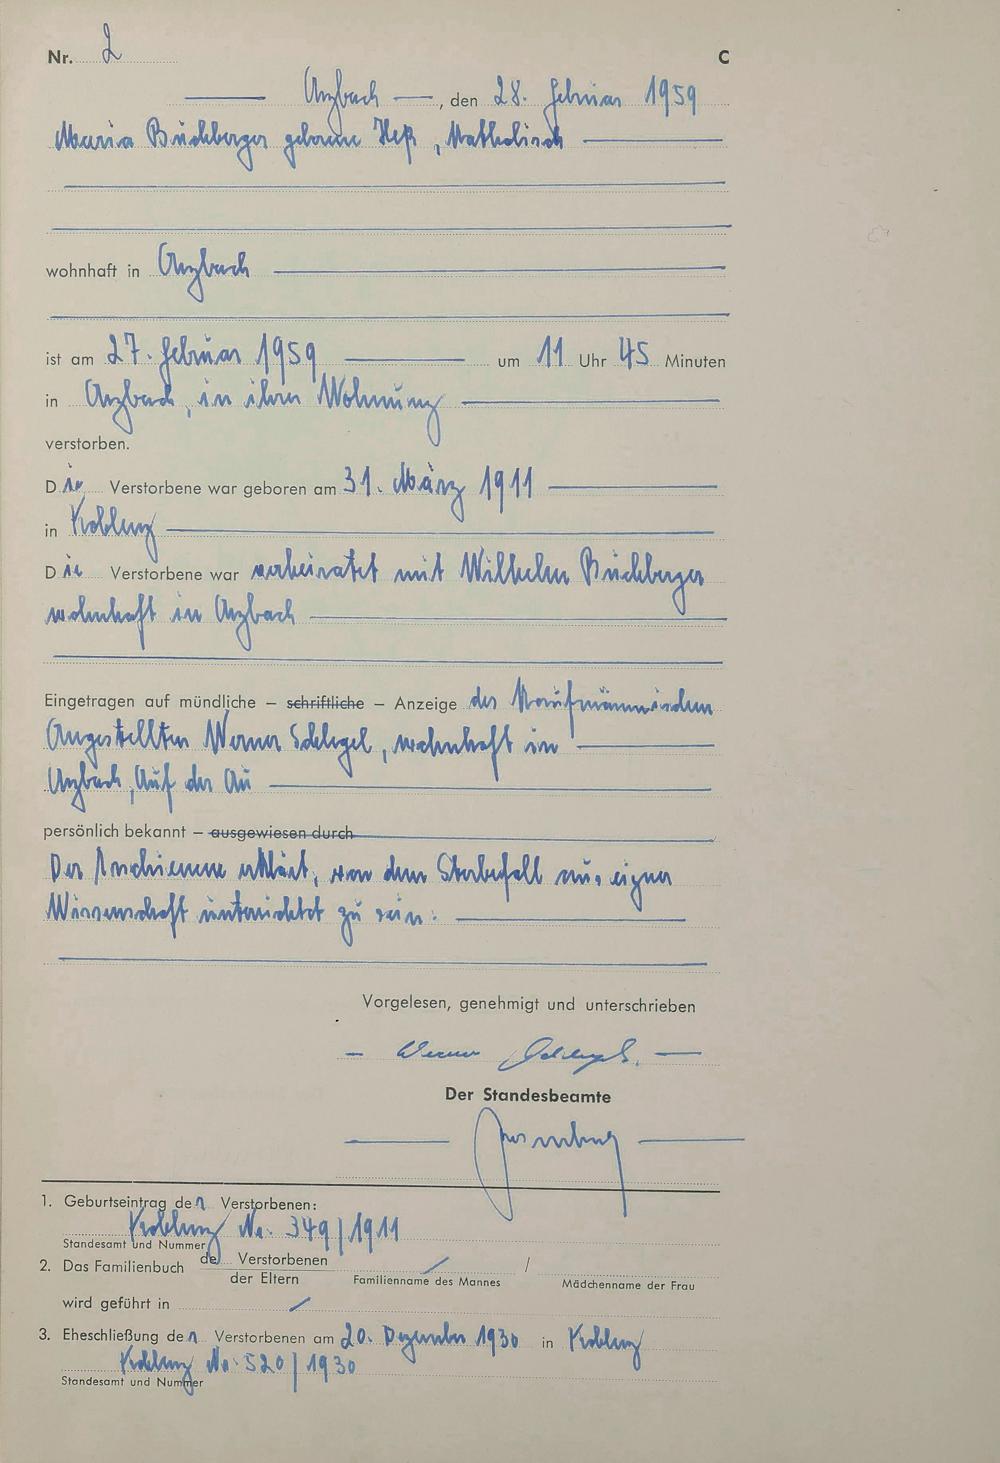 Nr. 2 C
Arzbach, den 28. Februar 1959
Maria Buchberger geborene Heß, Katholisch
wohnhaft in Arzbach
ist am 27. Februar 1959 um 11 Uhr 45 Minuten
in Arzbach, in ihrer Wohnung
verstorben.
Die Verstorbene war geboren am 31. März 1911
in Koblenz
Die Verstorbene war verheiratet mit Wilhelm Buchberger
wohnhaft in Arzbach
Eingetragen auf mündliche – schriftliche – Anzeige des Kaufmännischen
Angestellten Werner Schlegel, wohnhaft in
Arzbach, Auf der Au
persönlich bekannt – ausgewiesen durch
Der Erschienene erklärt, von dem Sterbefall aus eigner
Wissenschaft unterrichtet zu sein.
Vorgelesen, genehmigt und unterschrieben
Werner Schlegel.
Der Standesbeamte
1. Geburtseintrag der Verstorbenen:
Koblenz Nr. 349/1911
Standesamt und Nummer
2. Das Familienbuch de Verstorbenen /
der Eltern Familienname des Mannes Mädchenname der Frau
wird geführt in
3. Eheschließung der Verstorbenen am 20. Dezember 1930 in Koblenz
Koblenz Nr. 520/1930
Standesamt und Nummer